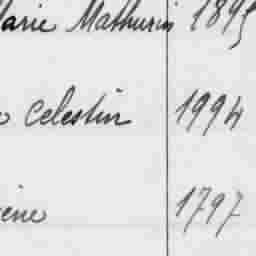 Marie Mathurin 1895
Celestin 1994
ène 1797